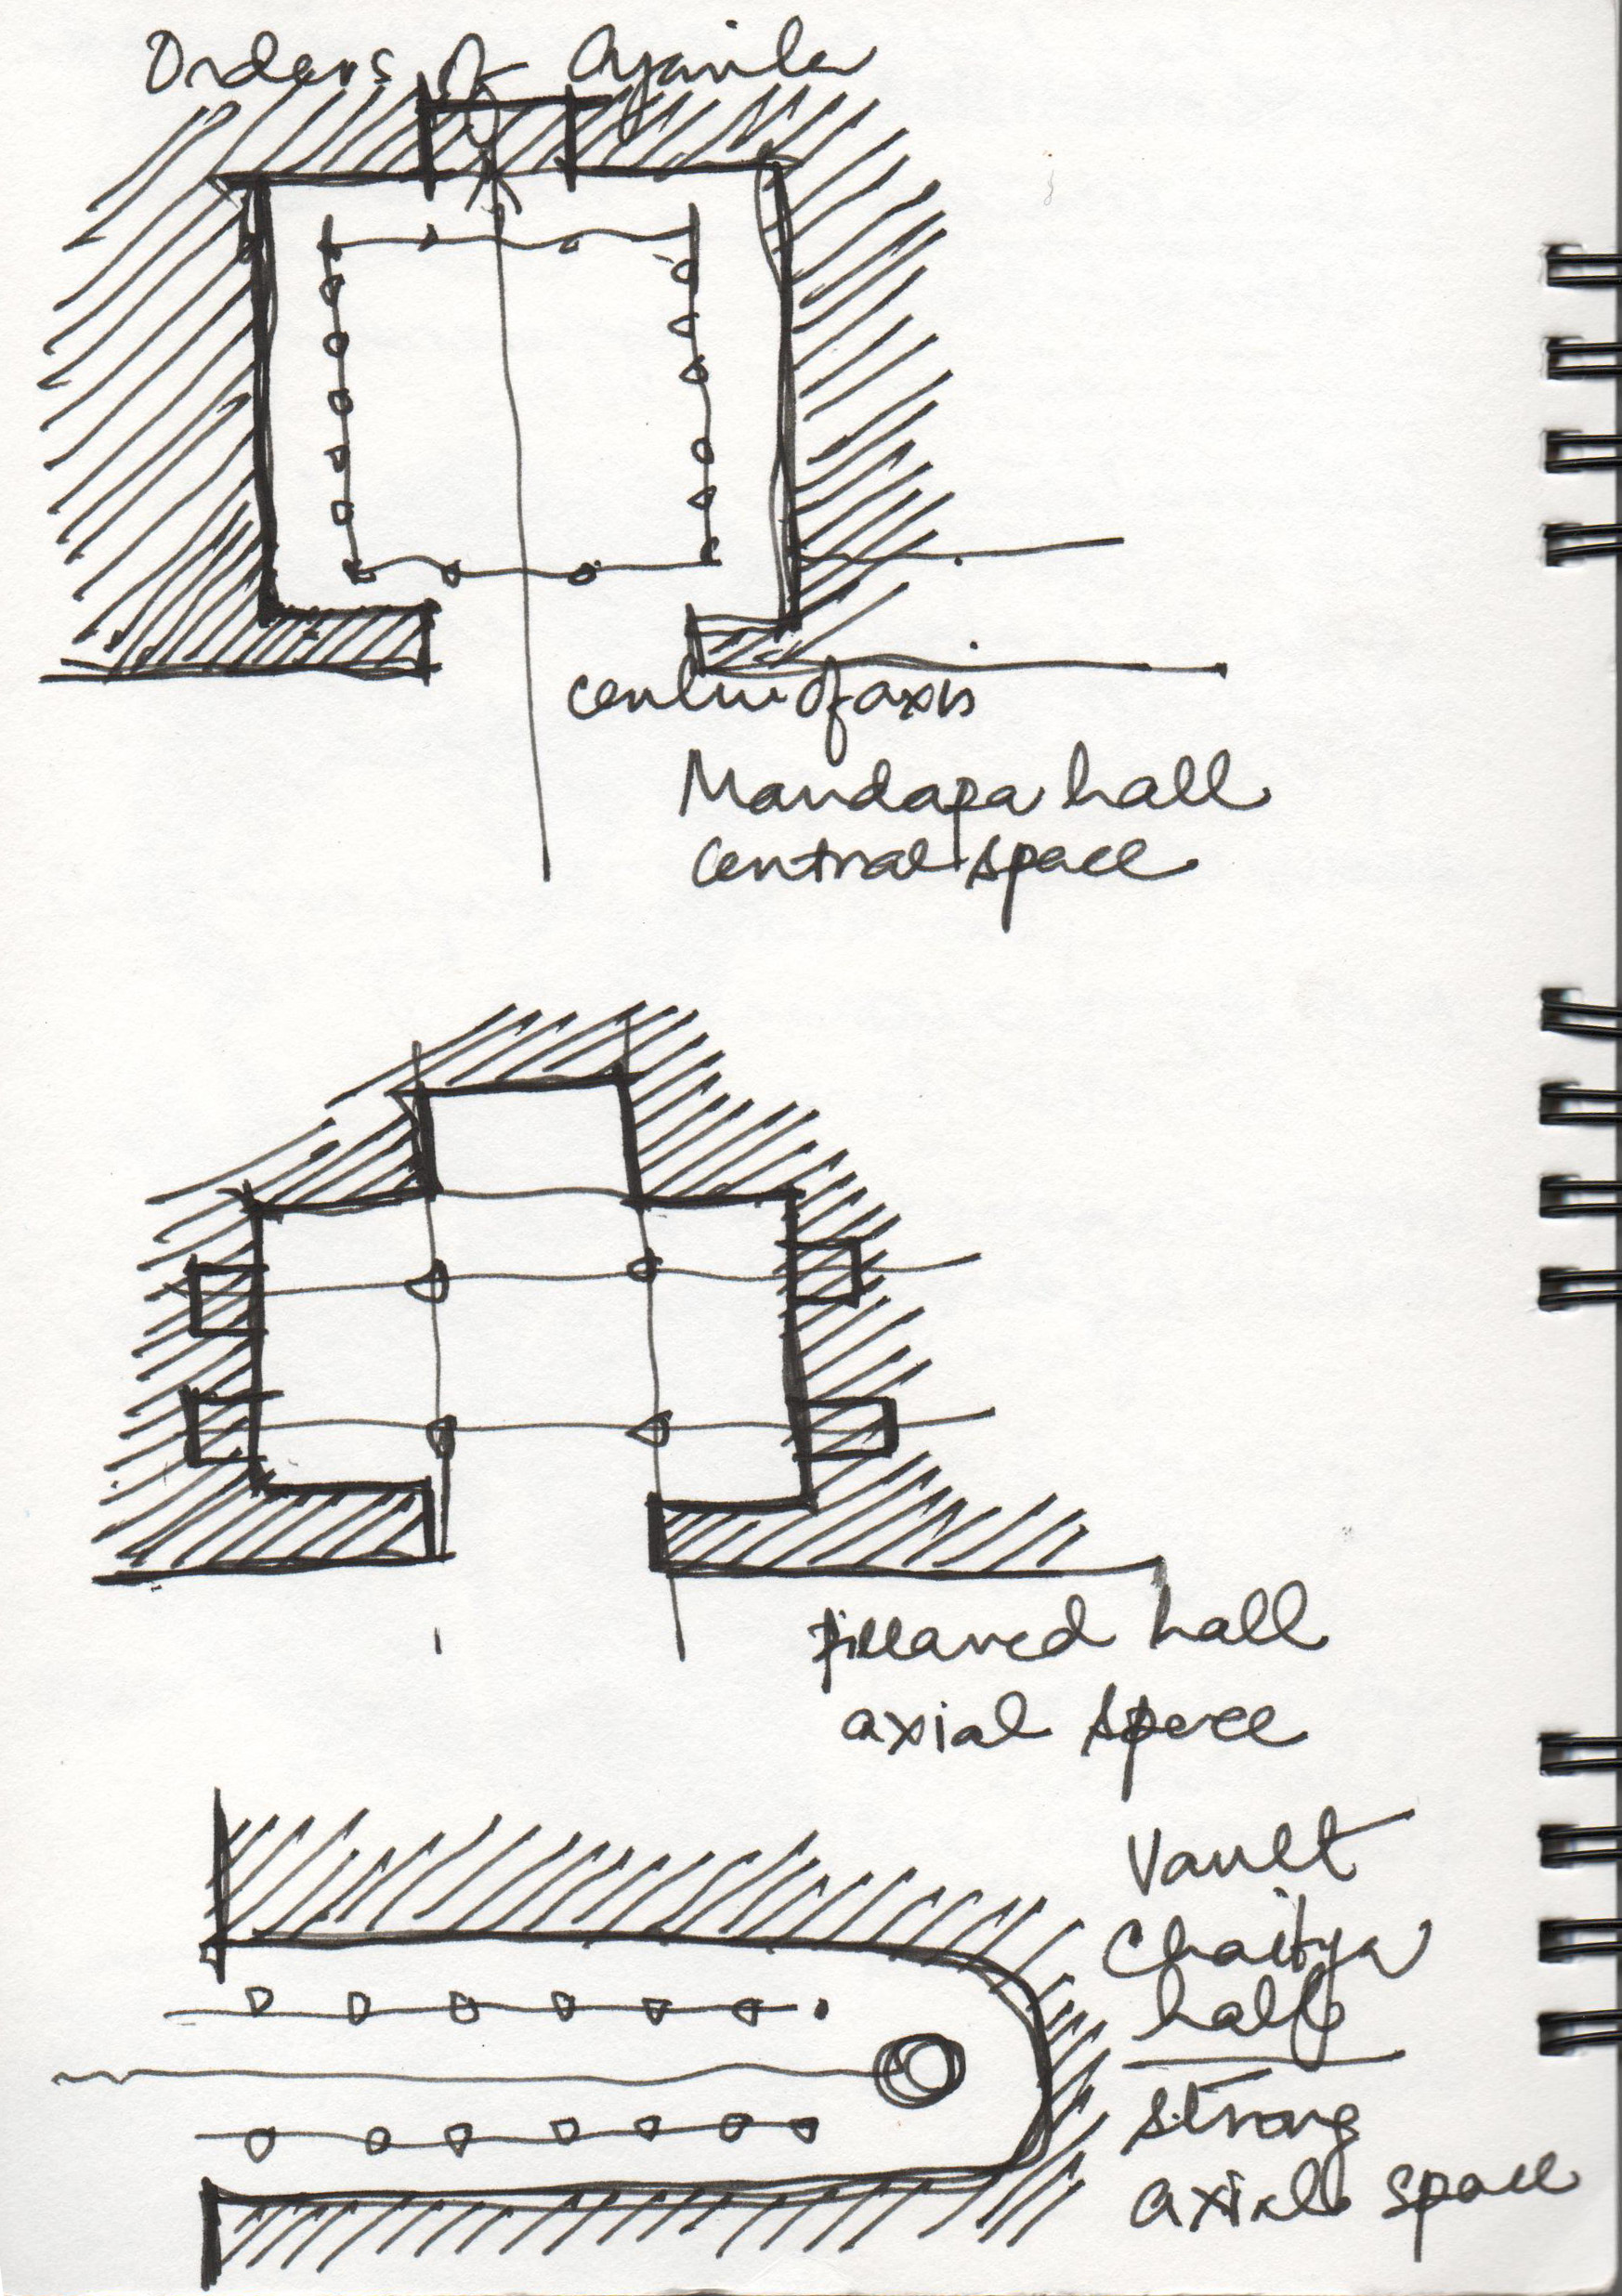 Orders of Ajanta
centre of axis
Mandapa hall
central space
pillared hall
axial space
Vault
Chaitya
hall
strong
axial space